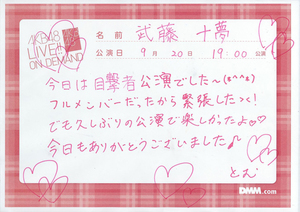 AKB48
LIVE!!
ON DEMAND
名前 武藤 十夢
公演日 9月20日 19:00公演
今日は目撃者公演でした〜(ε^^ε)
フルメンバーだったから緊張したっく!
でも久しぶりの公演で楽しかったよ♡
今日もありがとうございました♪
とむ
DMM.com